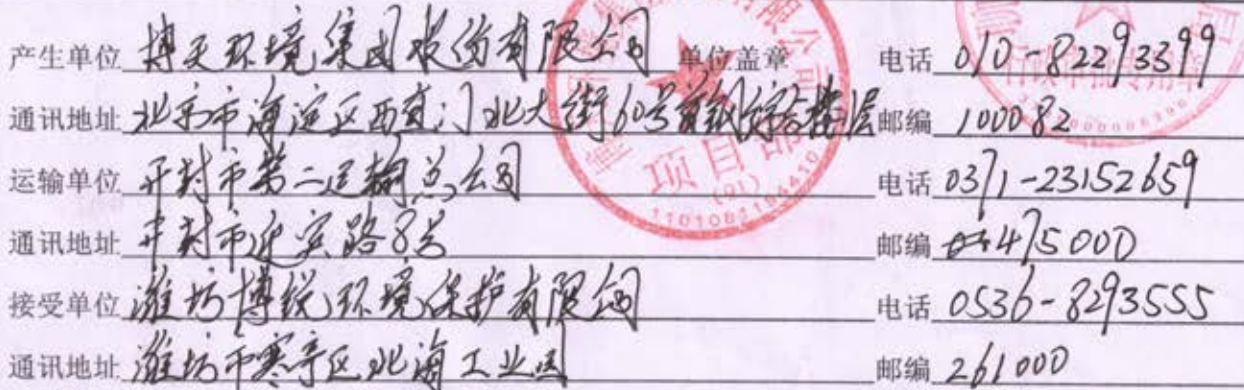 产生单位 博天环境集团股份有限公司 单位盖章 电话 010-82293399
通讯地址 北京市海淀区西直门北大街60号首钢综合楼层 邮编 100082
运输单位 开封市第二运输总公司 电话 0371-23152659
通讯地址 开封市迎宾路8号 邮编 475000
接受单位 潍坊博锐环境保护有限公司 电话 0536-8293555
通讯地址 潍坊市寒亭区北海工业园 邮编 261000
有限公司
项目部
(91)